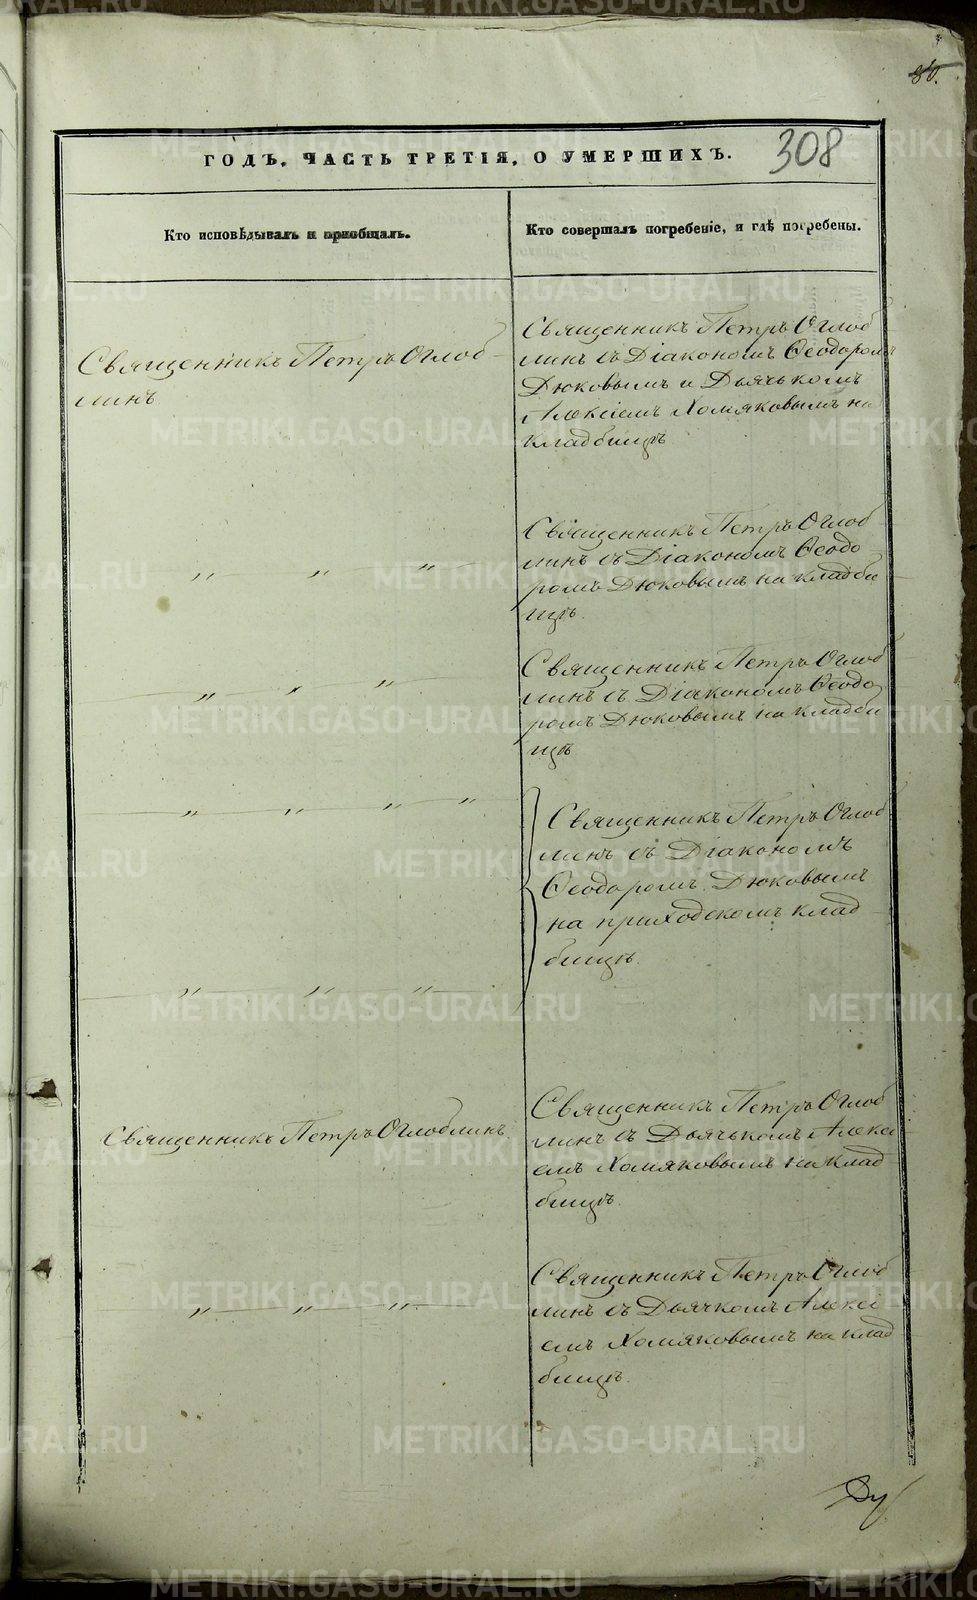 80.
308
ГОДЪ, ЧАСТЬ ТРЕТІЯ, О УМЕРШИХЪ.
Кто исповѣдывалъ и пріобщалъ.
Кто совершалъ погребеніе, и гдѣ погребены.
Священникъ Петръ Оглоб-
линъ
Священникъ Петръ Оглоб
линъ съ Діакономъ Ѳеодоромъ
Дюковымъ и Дьячькомъ
Алексіемъ Хомяковымъ на
кладбищѣ
„ „ „
Священникъ Петръ Оглоб
линъ съ Діакономъ Ѳеодо
ромъ Дюковымъ на кладби
щѣ.
„ „ „
Священникъ Петръ Оглоб
линъ съ Діакономъ Ѳеодо
ромъ Дюковымъ на кладби
щѣ
„ „ „ „
Священникъ Петръ Оглоб
линъ съ Діакономъ
Ѳеодоромъ Дюковымъ
на приходскомъ клад
бищѣ.
„ „ „
Священникъ Петръ Оглоблинъ.
Священникъ Петръ Оглоб
линъ съ Дьячькомъ Алексі
емъ Хомяковымъ на клад
бищѣ.
„ „ „
Священникъ Петръ Оглоб
линъ съ Дьячкомъ Алексі
емъ Хомяковымъ на клад
бищѣ.
METRIKI.GASO-URAL.RU